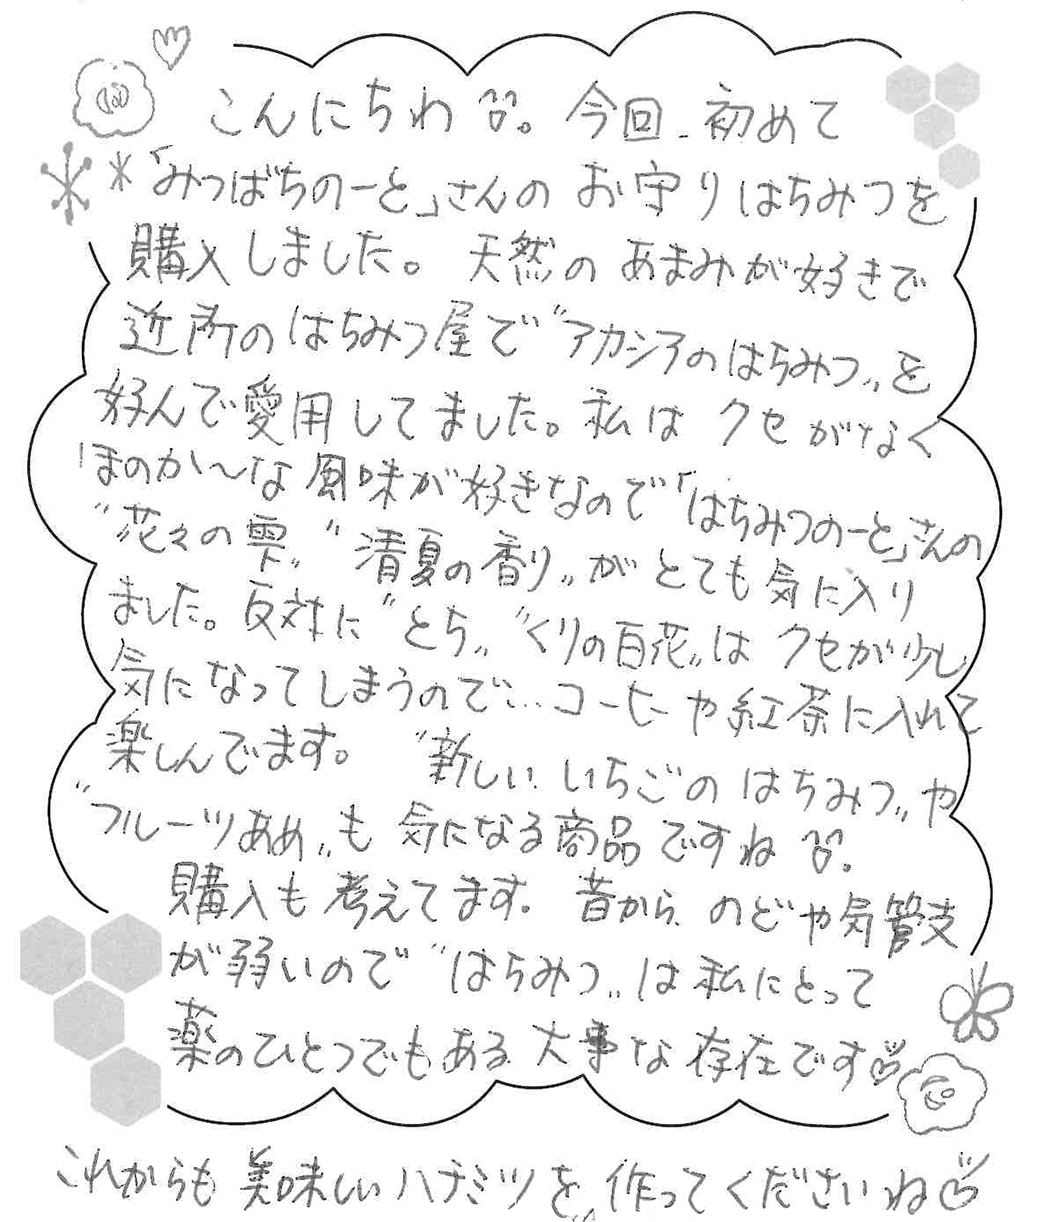 こんにちわ 。今回、初めて
「みつばちのーと」さんの お守りはちみつを
購入しました。天然の あまみが好きで
近所のはちみつ屋で〝アカシアのはちみつ〟を
好んで愛用してました。私は クセがなく
ほのか〜な風味が好きなので「はちみつのーと」さんの
〝花々の雫〟〝清夏の香り〟がとても気に入り
ました。反対に〝とち〟〝くりの百花〟は クセが少し
気になってしまうので…コーヒーや紅茶に入れて
楽しんでます。〝新しい いちごの はちみつ〟や
〝フルーツあめ〟も 気になる商品ですね 。
購入も考えてます。昔から のどや気管支
が弱いので〝はちみつ〟は私にとって
薬のひとつでもある 大事な存在です♡
これからも 美味しいハチミツを 作ってくださいね♡